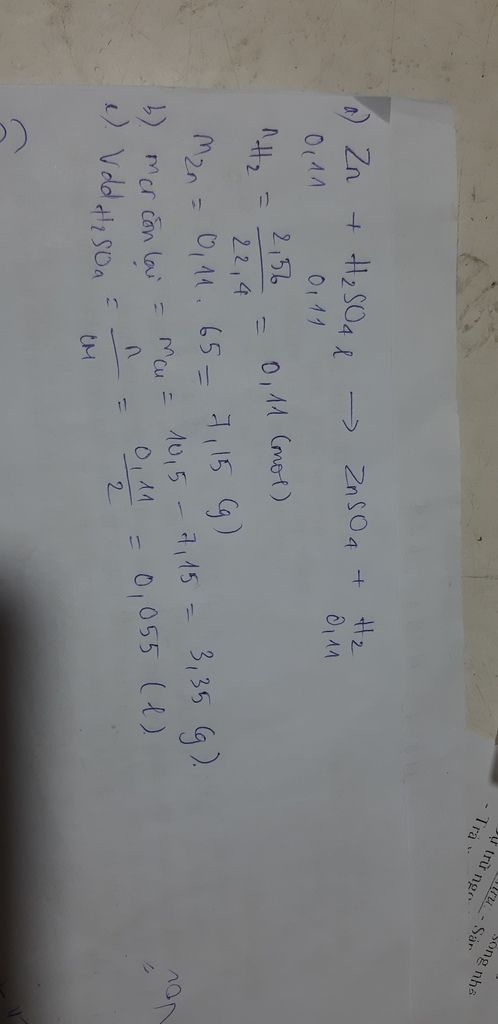 a) Zn + H2SO4 l → ZnSO4 + H2
0,11 0,11 0,11
nH2 = 2,56 / 22,4 = 0,11 (mol)
mZn = 0,11 . 65 = 7,15 (g)
b) mcr còn lại = mcu = 10,5 - 7,15 = 3,35 (g).
c). Vdd H2SO4 = n / CM = 0,11 / 2 = 0,055 (l)
song
- Trả